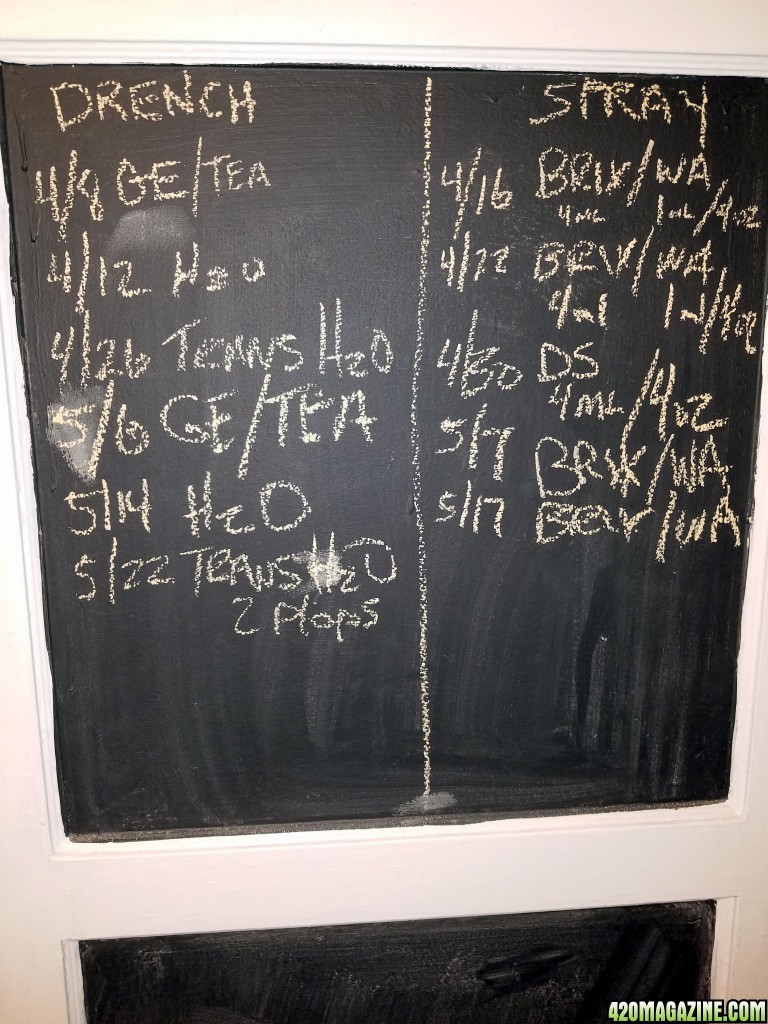 DRENCH
4/8 GE/TEA
4/12 H2O
4/26 TRANS H2O
5/6 GE/TEA
5/14 H2O
5/22 TRANS H2O
2 PlopS
SPRAY
4/16 BRIX/WA
4 mL 1 mL/4 oz
4/22 BRIX/WA
4 ml 1 ml/4 oz
4/30 DS
4 mL/4 oz
5/7 BRIX/WA
5/17 BRIX/WA
420MAGAZINE.COM